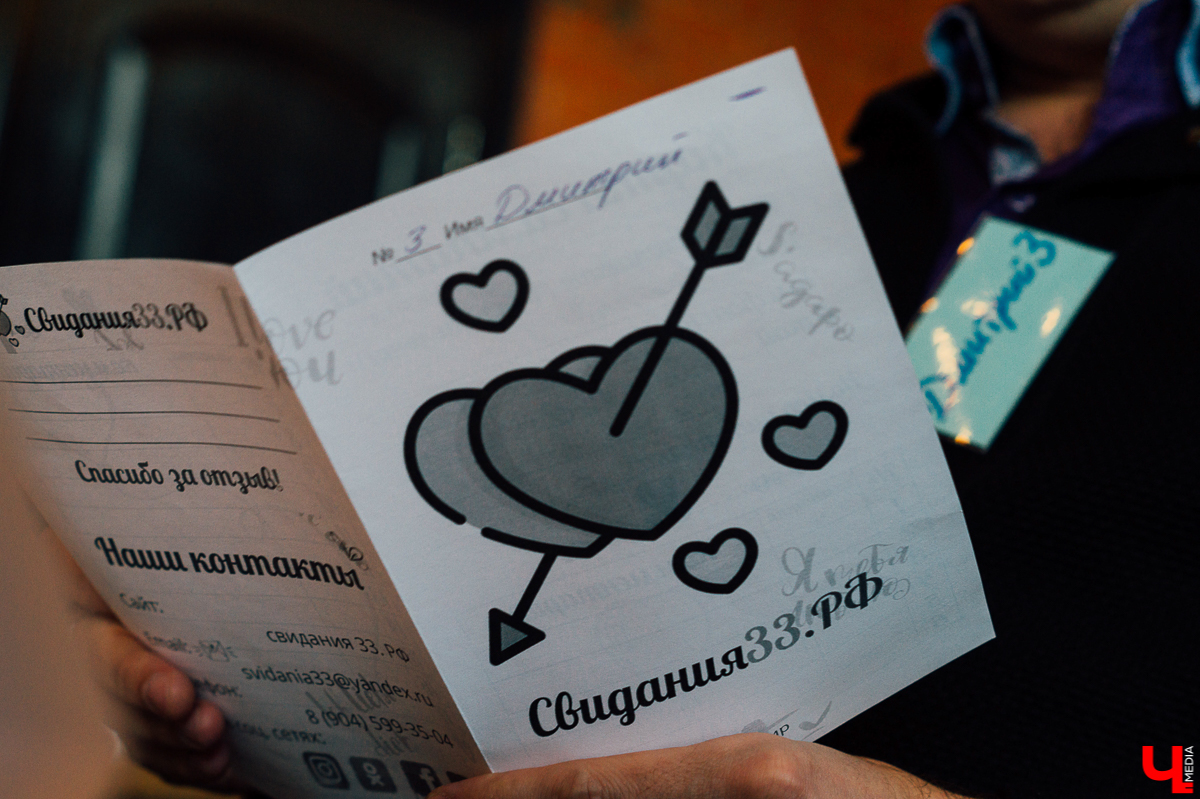 Свидания33.РФ
Спасибо за отзыв!
Наши контакты
Сайт:
свидания 33.РФ
Email:
svidania33@yandex.ru
8 (904) 599-35-04
соц. сетях:
№ 3 Имя Дмитрий
love
Я тебя
Свидания33.РФ
Дмитрий 3
Ч MEDIA